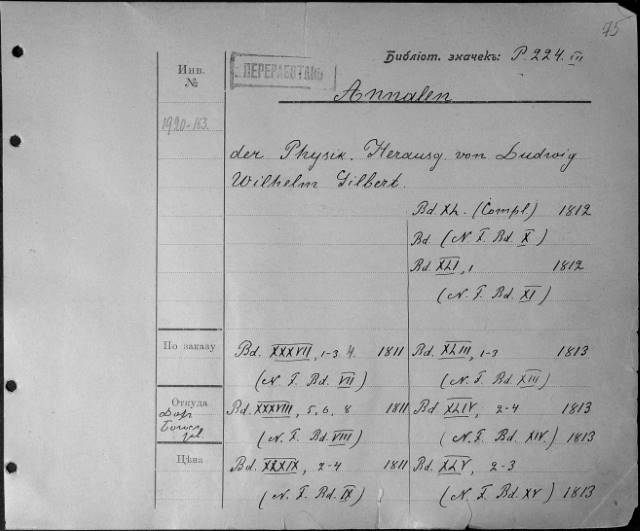 95
Библіот. значекъ: P.224. III
Инв. №
ПЕРЕРАБОТАНЬ
Annalen
1920-163.
der Physik. Herausg. von Ludwig
Wilhelm Gilbert.
Bd. XL. (Compl) 1812
Bd. (N. F. Bd. X)
Bd. XLI, 1 1812
(N. F. Bd. XI)
По заказу
Bd. XXXVII, 1-3 4. 1811
(N. F. Bd. VII)
Bd. XLIII, 1-3 1813
(N. F. Bd. XIII)
Откуда
Bd. XXXVIII, 5, 6, 8 1811
(N. F. Bd. VIII)
Bd. XLIV, 2-4 1813
(N. F. Bd. XIV.) 1813
Цѣна
Bd. XXXIX, 2-4 1811
(N. F. Bd. IX)
Bd. XLV, 2-3
(N. F. Bd. XV) 1813